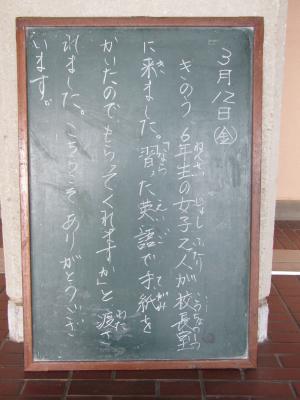 3月12日㊎
きのう 6年生の女子2人が校長室
に来ました。習った英語で手紙を
かいたので、もらってくれますか」と渡さ
れました。こちらこそありがとうござ
います。